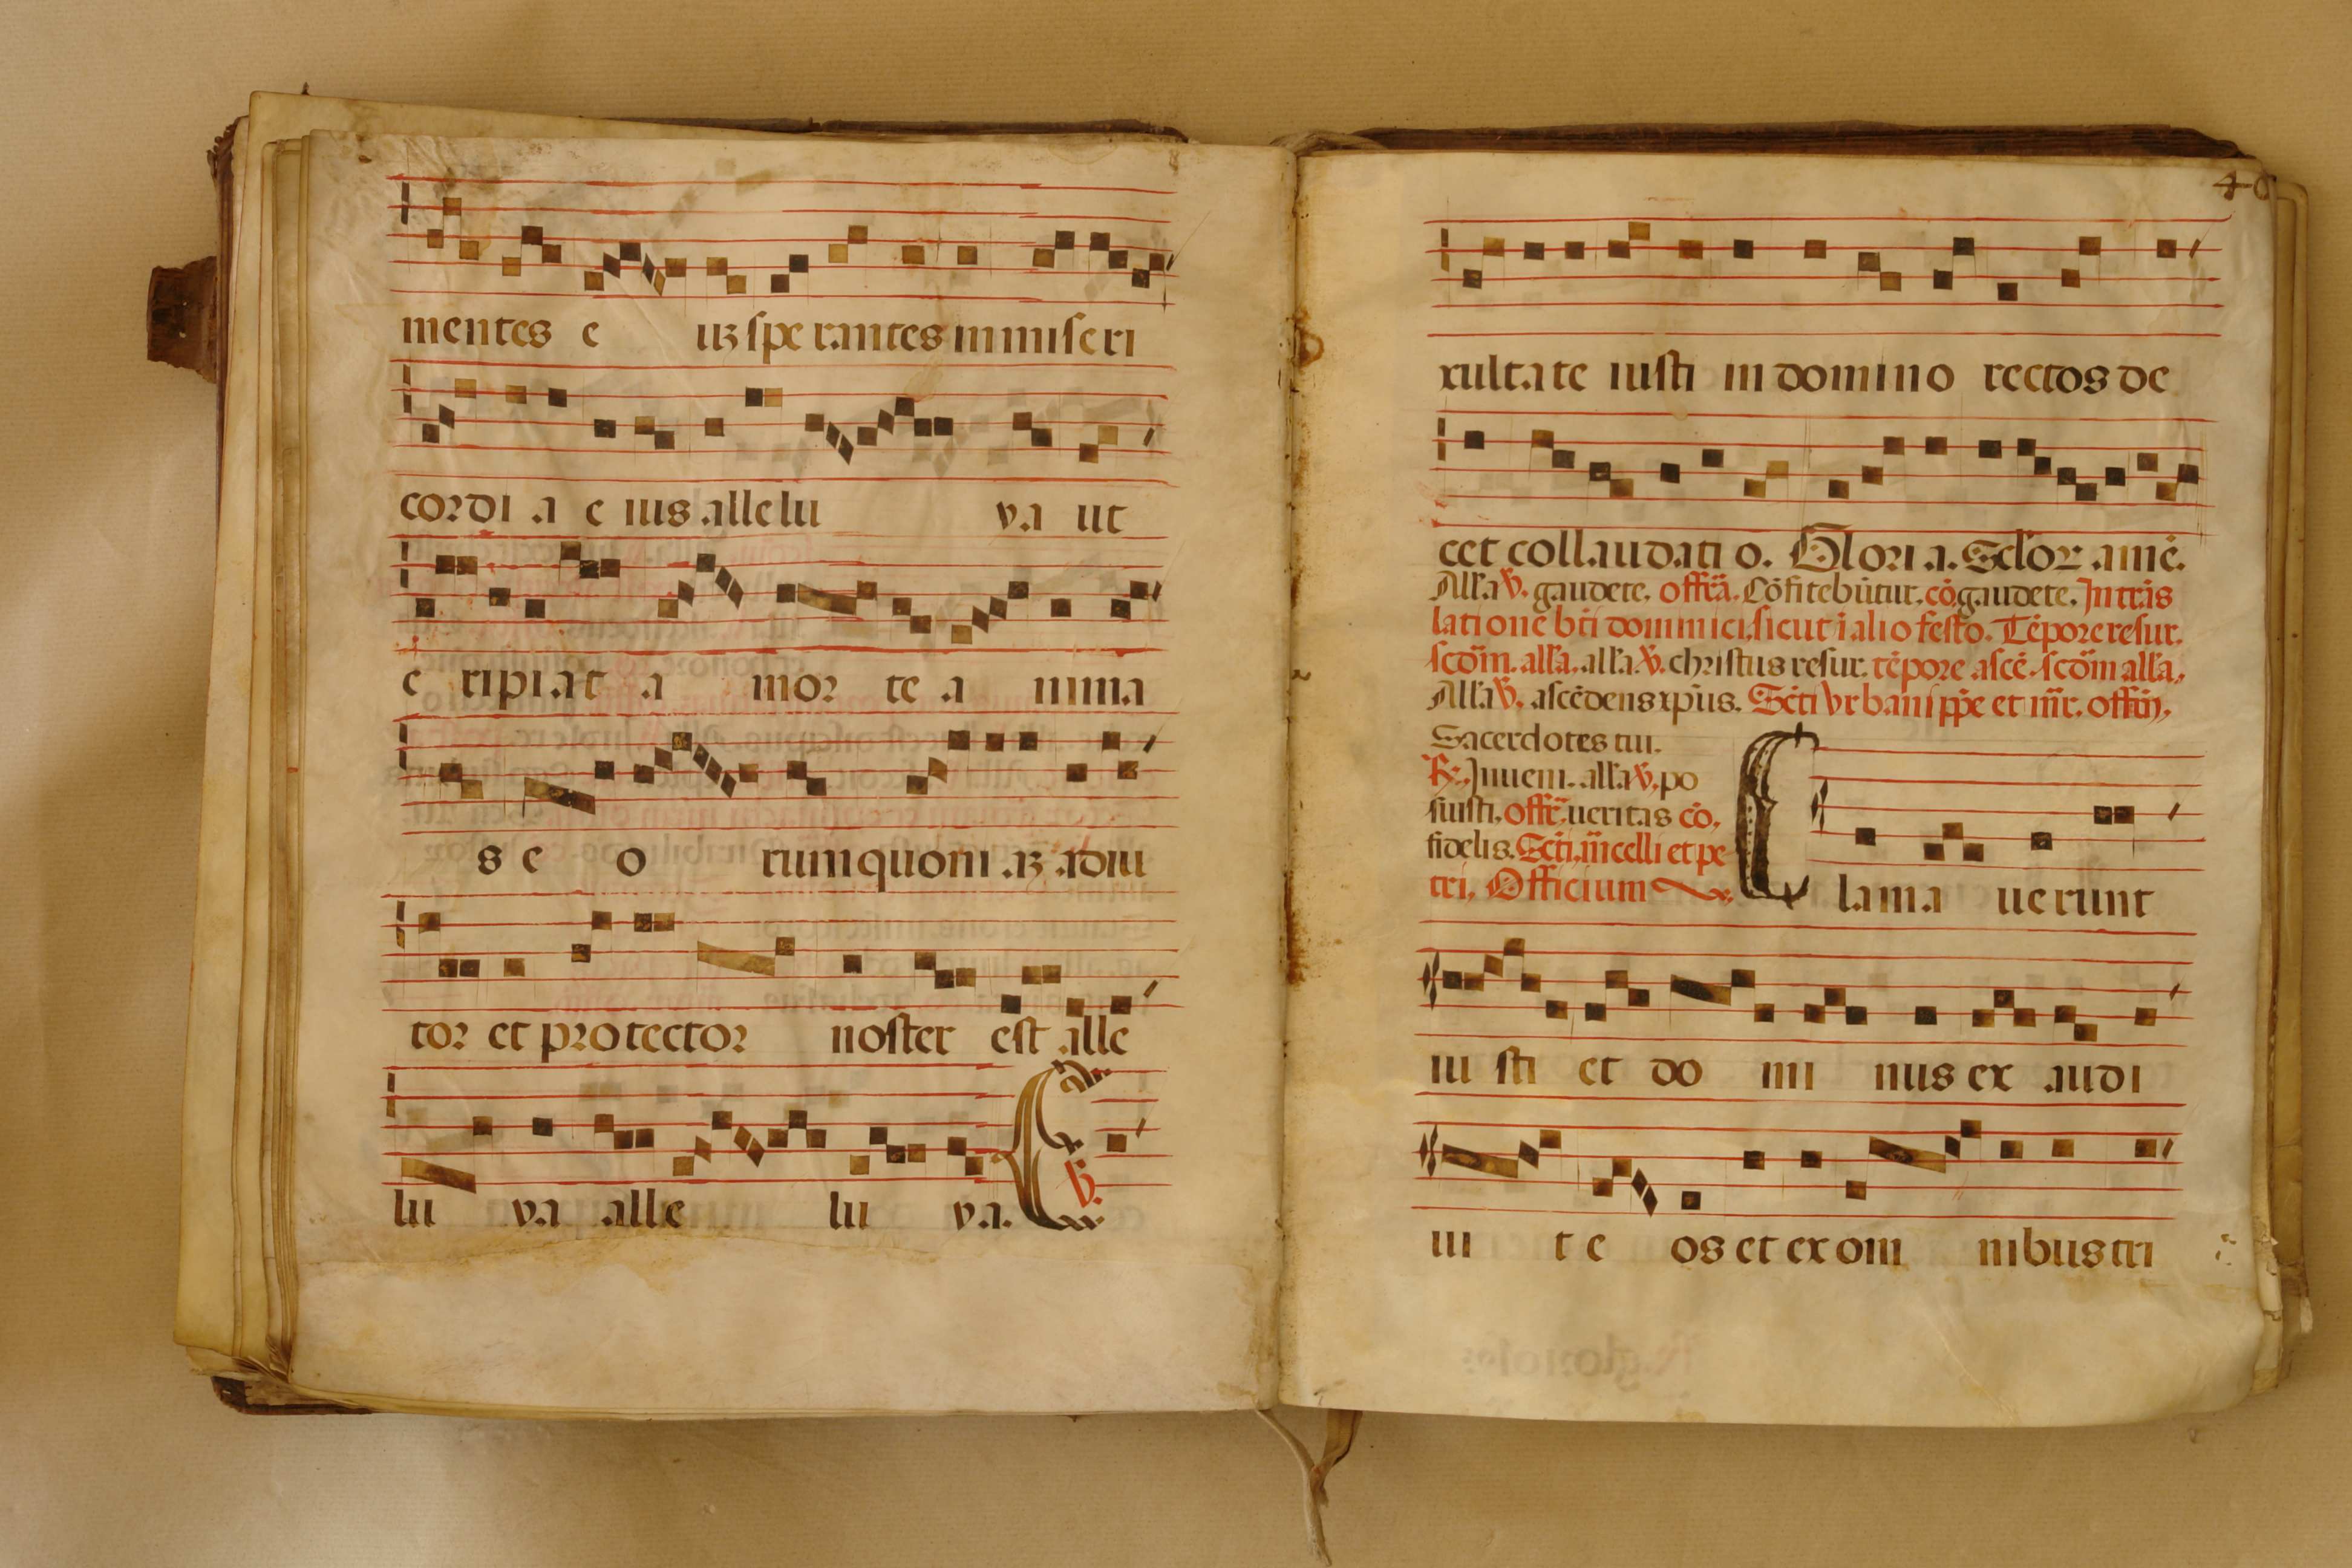 mentes e uꝫ spe rantes in miseri
cordi a e ius allelu ya ut
e ripiat a mor te a nima
s e o rum quoni aꝫ adiu
tor et protector noster est alle
lu ya alle lu ya. E ℣.
40
xultate iusti in domino rectos de
cet collaudati o. Glori a. Sc̄lor amē.
All'a ℣. gaudete. offr̄a. Cōfitebūtur. cō. gaudete. In trās
latione bt̄i dominici, sicut ī alio festo. Tēpore resur.
scd̄m. all'a. all'a ℣. christus resur. tēpore ascē. scd̄m all'a,
All'a ℣. ascēdens xp̄us. Sct̄i vrbani pp̄e et mr̄. offīm,
Sacerdotes tui.
℟. Inueni. all'a ℣, po
suisti, offr̄. ueritas cō,
fidelis. Sct̄i, m̄celli et pe
tri, Officium
C lama uerunt
iu sti et do mi nus ex audi
ui t e os et ex om nibus tri